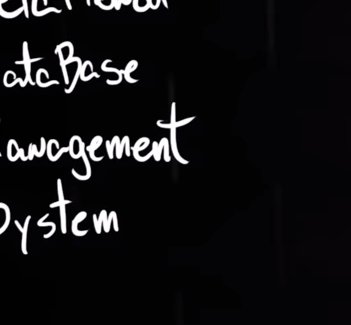 ataBase
anagement
System